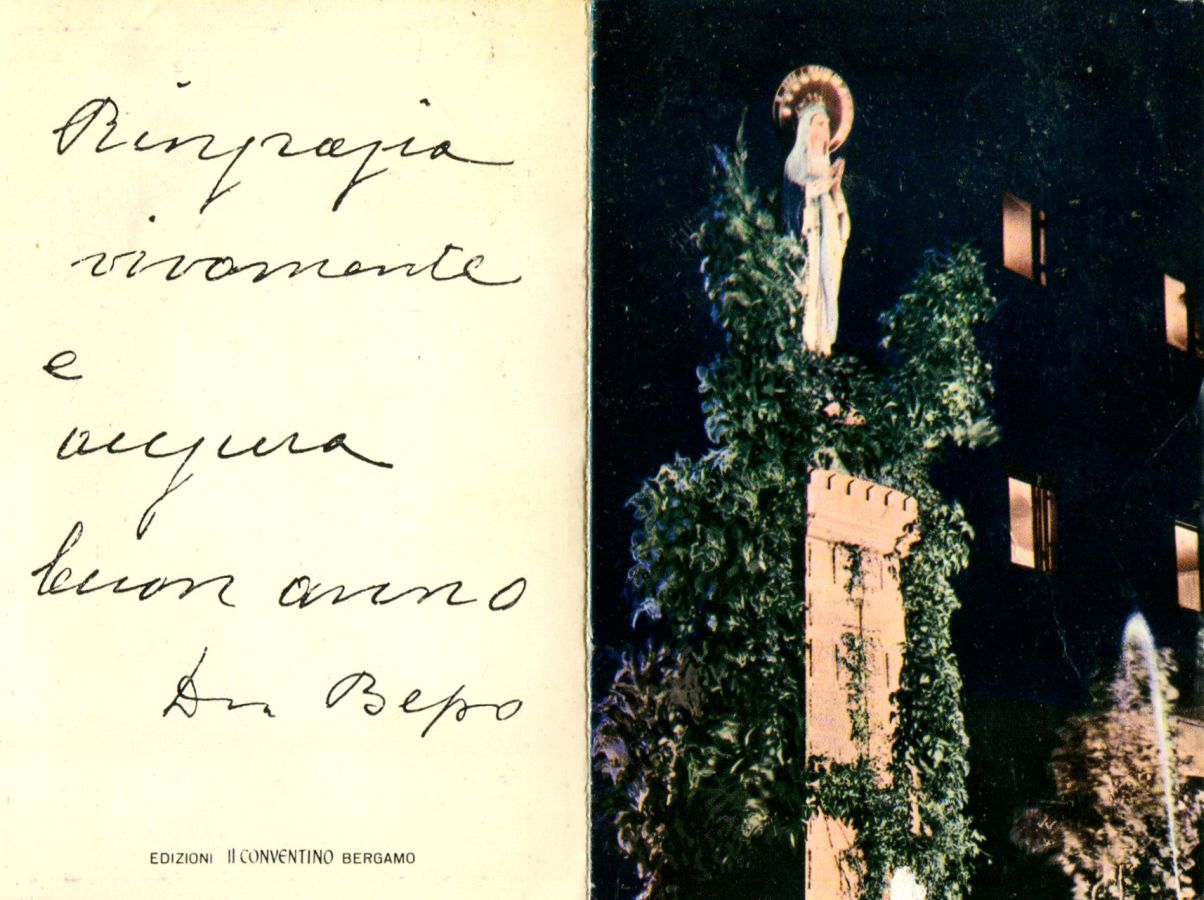 Ringrazia
vivamente
e
augura
buon anno
Don Bepo
EDIZIONI Il CONVENTINO BERGAMO